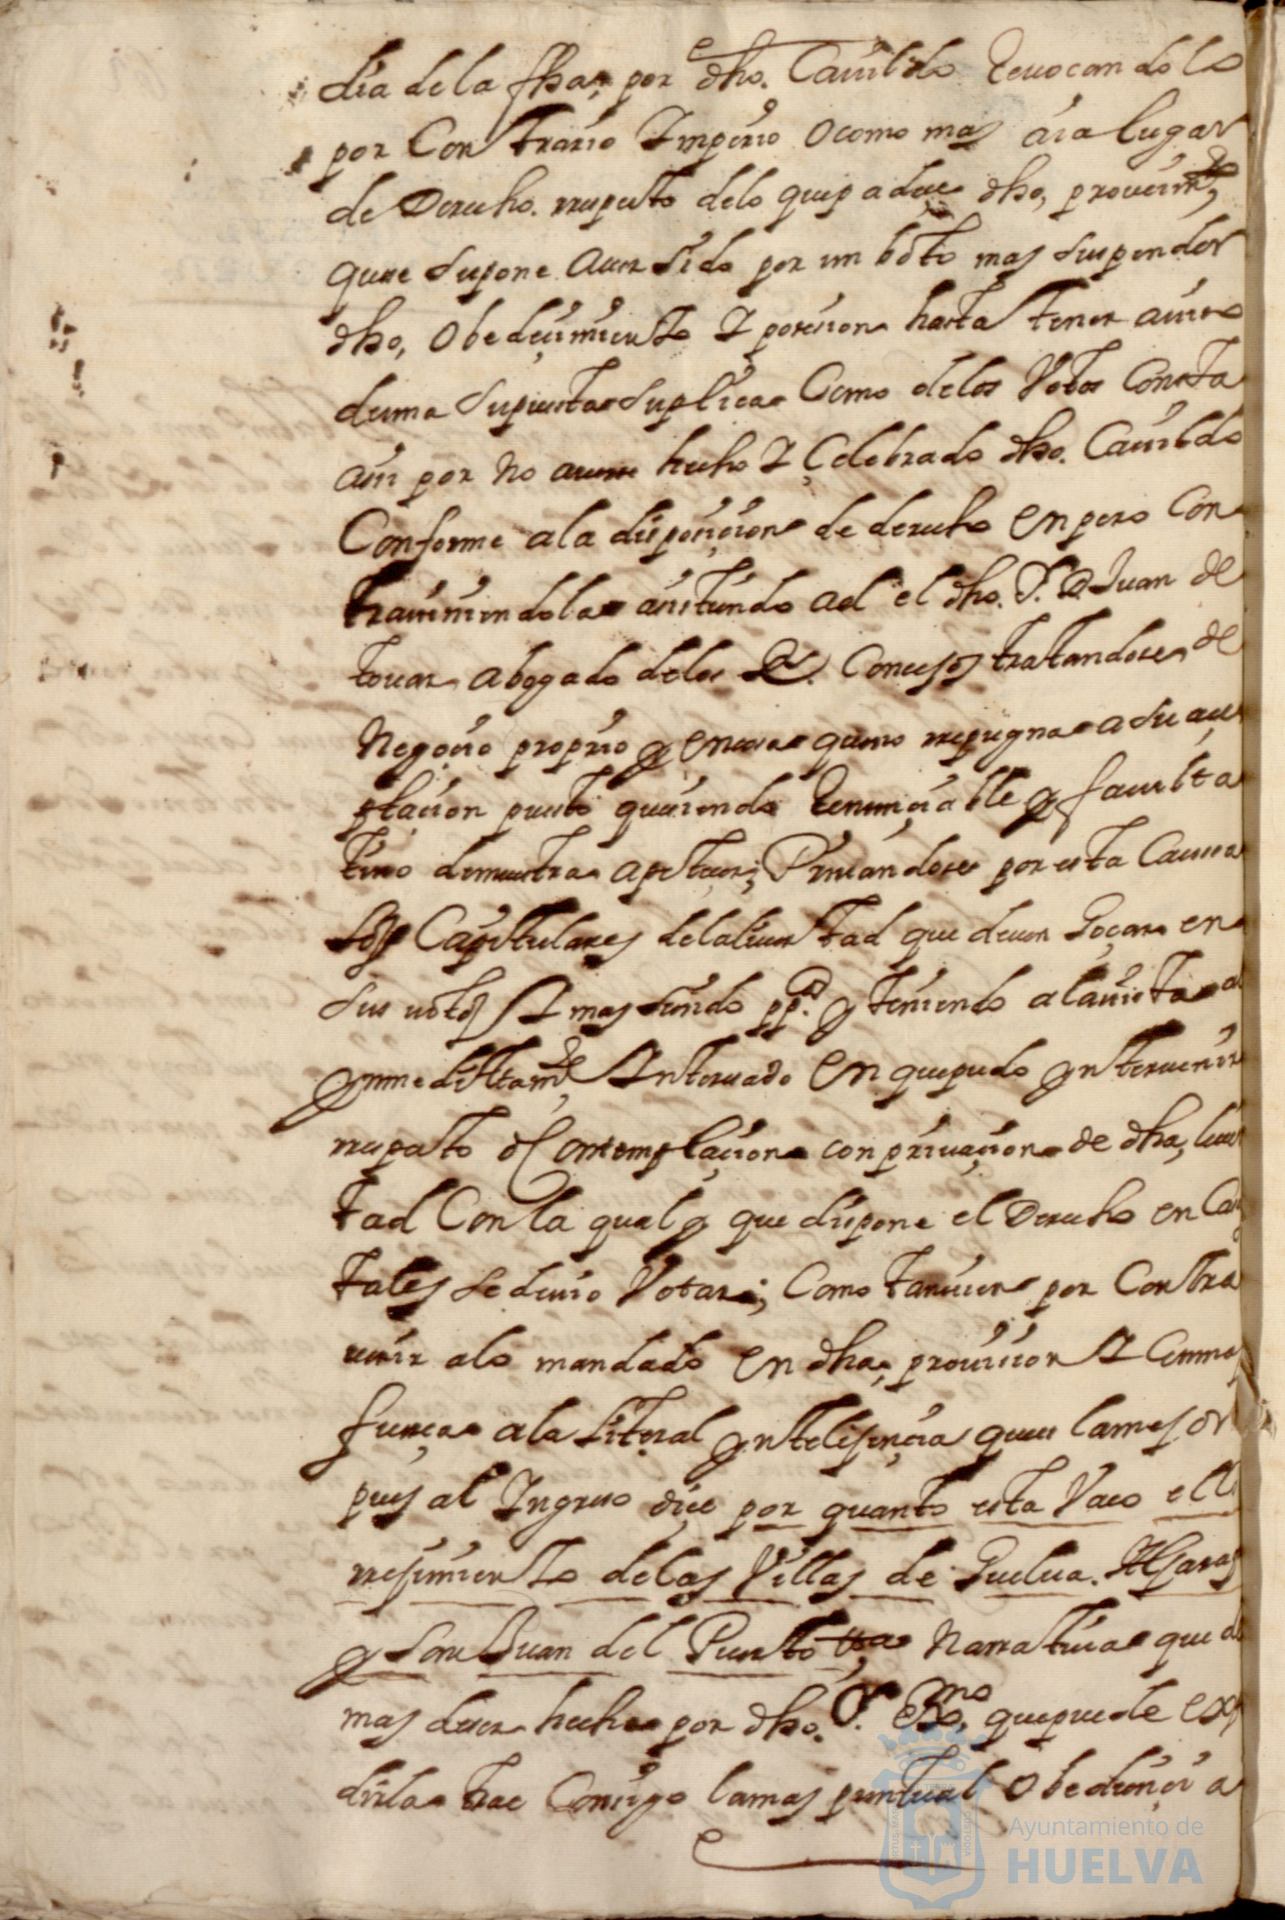 dia de la fha; por el dho. Cauildo Reuocandolo
por Contrario Imperio o como mas aia lugar
de Derecho. rrespecto de lo que padece dho, proueimto,
que se supone auer sido por un boto mas suspender
dho, obedeçimiento I posesion hasta tener auiso
de una supuesta suplica Como de los Votos Consta
asi por no auerse hecho I Çelebrado dho. Cauildo
Conforme a la disposiçion de derecho en pero Con
trauiniendola asistiendo a el el dho. S. D Juan de
touar abogado de los Rs. Consejos tratandose de
Negoçio proprio y en cosa que no rrepugna a su açe
ptacion puesto que siendo Renunçiable y faculta
tiuo demuestra apeteçer; Priuandose por esta Causa
los Capitulares de la liuertad que deuen Goçar en
sus uotos I mas siendo ppd. y teniendo a la uista a
ynmediatamte Interesado en que pudo ynteruenir
rrespecto o Contemplaçion con priuaçion de dha, liuer
tad Con la qual y que dispone el Derecho en Cau
tales se deuio Votar; Como tanuien por Contra
uenir a lo mandado en dha; prouision I Comma
fuerça a la literal yntelijençia que es la mejor
pues al Ingreso diçe por quanto esta Vaco el Co
rrejimiento de las Villas de Guelua. Aljaraq
y San Juan del Puerto Narratiua que de
mas de ser hecha por dho. Sr. Exmo, que puede exp
dirla trae Consigo la mas puntual obediençia
Ayuntamiento de
HUELVA